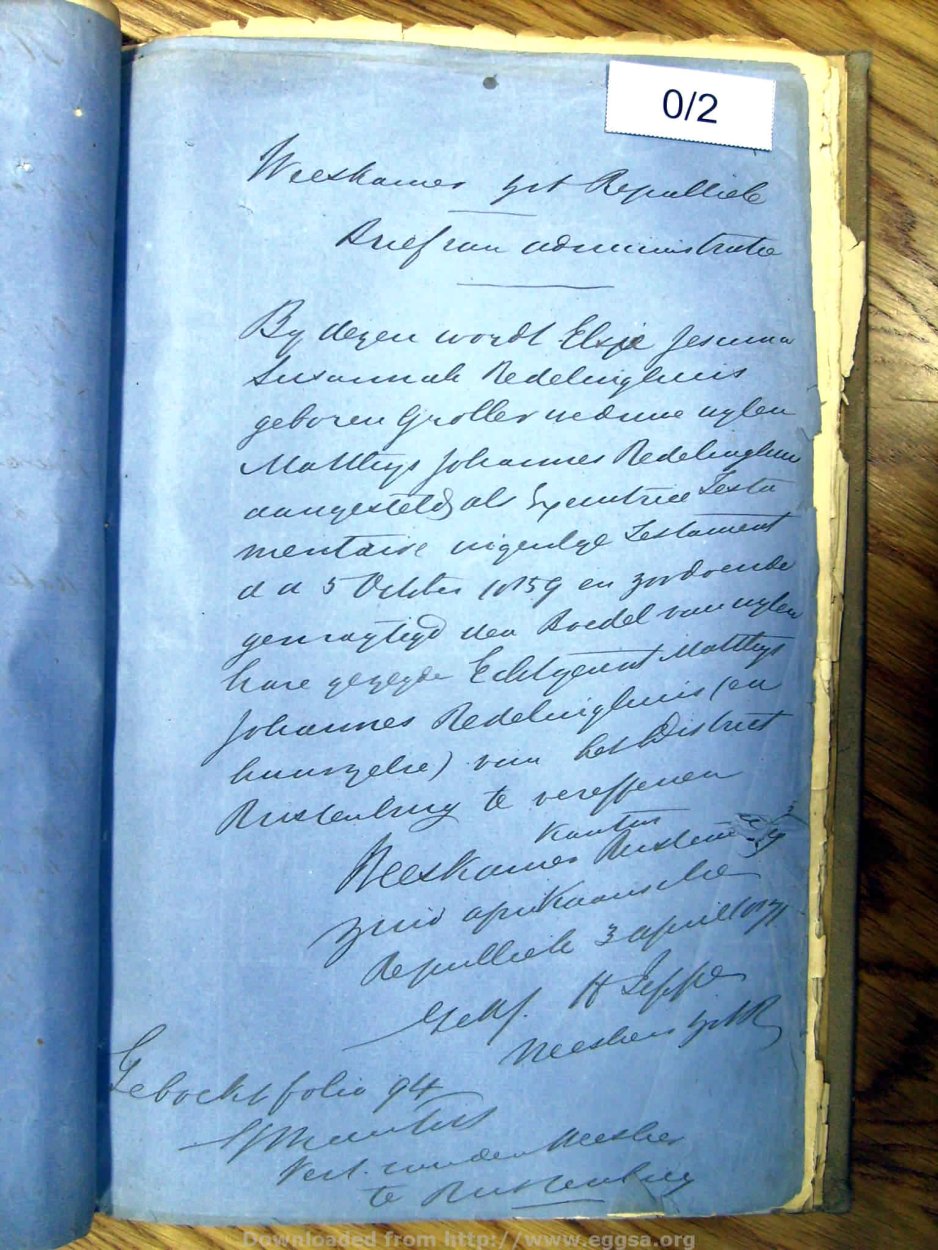 0/2
Weeskamer ZA Republiek
Brief van administratie
By dezen wordt Elsje Jesuina
Susannah Redelinghuis
geboren Grobler weduwe wylen
Matthys Johannes Redelinghuis
aangesteld als Executrice Testa
mentaire ingevolge Testament
d d 5 October 1859 en zoodoende
gemagtigd den Boedel van wylen
hare gezegde Echtgenoot Matthys
Johannes Redelinghuis (en
haarzelve) van het District
Rustenburg te vereffenen
Kantoor
Weeskamer Rustenburg
Zuid Afrikaansche
Republiek 3 april 1871
Get. H Jeppe
Weesheer ZAR
Geboekt folio 94
Vert. van den Weesheer
te Rustenburg
Downloaded from http://www.eggsa.org